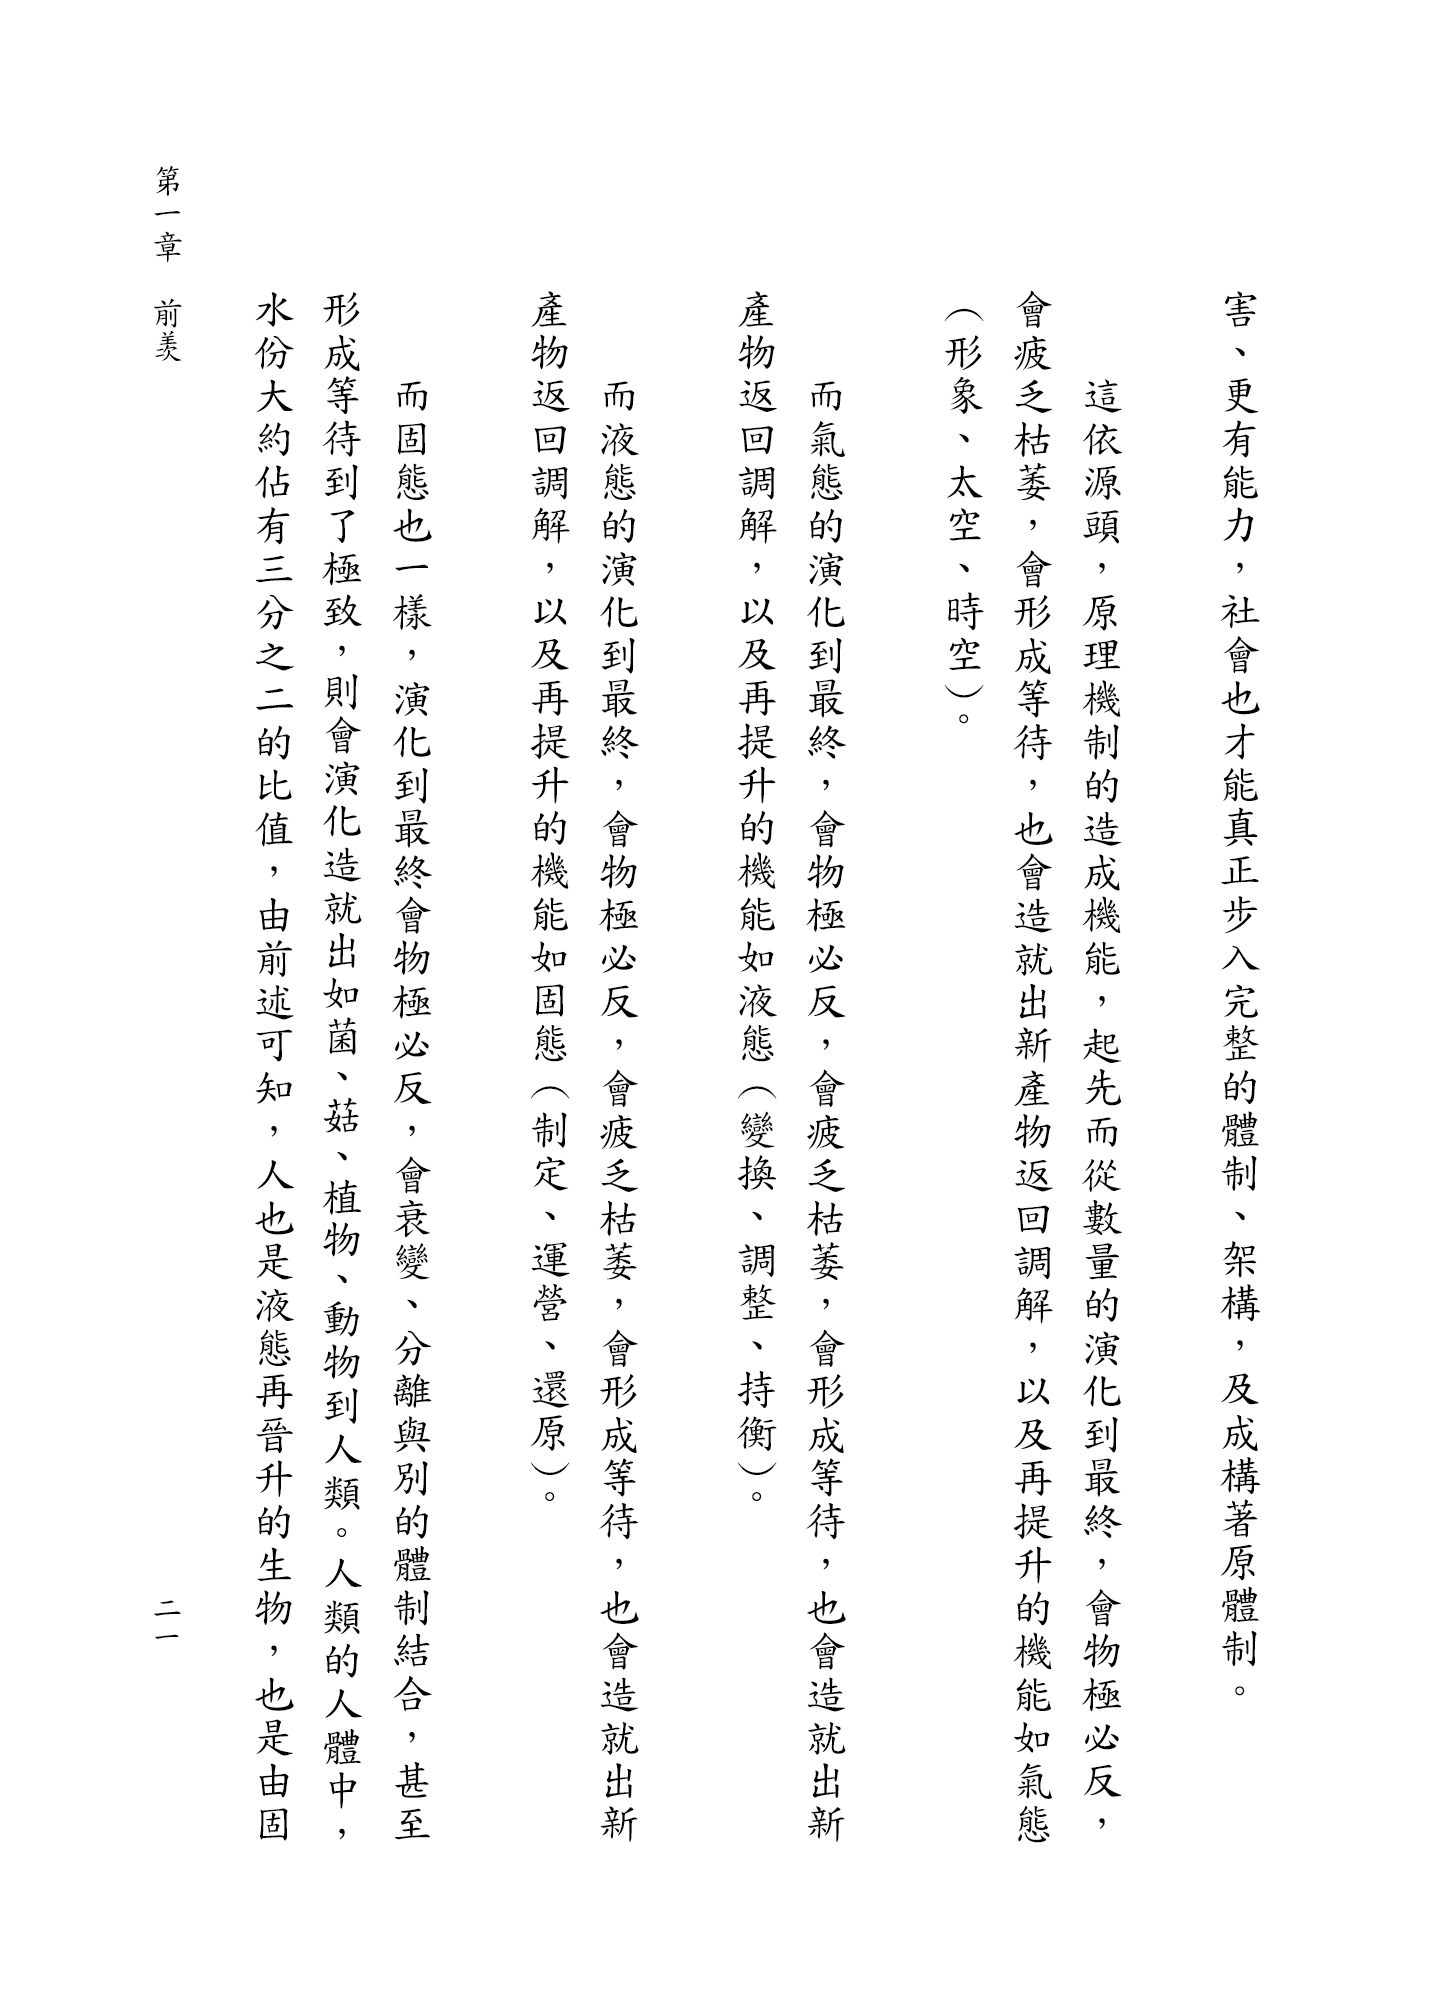 害、更有能力，社會也才能真正步入完整的體制、架構，及成構著原體制。
這依源頭，原理機制的造成機能，起先而從數量的演化到最終，會物極必反，
會疲乏枯萎，會形成等待，也會造就出新產物返回調解，以及再提升的機能如氣態
（形象、太空、時空）。
而氣態的演化到最終，會物極必反，會疲乏枯萎，會形成等待，也會造就出新
產物返回調解，以及再提升的機能如液態（變換、調整、持衡）。
而液態的演化到最終，會物極必反，會疲乏枯萎，會形成等待，也會造就出新
產物返回調解，以及再提升的機能如固態（制定、運營、還原）。
而固態也一樣，演化到最終會物極必反，會衰變、分離與別的體制結合，甚至
形成等待到了極致，則會演化造就出如菌、菇、植物、動物到人類。人類的人體中，
水份大約佔有三分之二的比值，由前述可知，人也是液態再晉升的生物，也是由固
第一章　前羑
二一